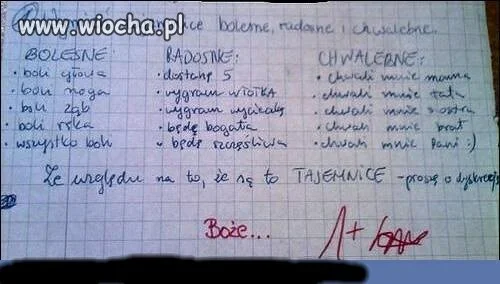 www.wiocha.pl
bolesne, radosne i chwalebne.
BOLESNE: RADOSNE: CHWALEBNE:
• boli głowa • dostanę 5 • chwali mnie mama
• boli noga • wygram WIOTKA • chwali mnie tata
• boli ząb • wygram wycieczkę • chwali mnie siostra
• boli ręka • będę bogata • chwali mnie brat
• wszystko boli • będę szczęśliwa • chwali mnie Pani :)
Ze względu na to, że są to TAJEMNICE - proszę o dyskrecję
Boże... 1+